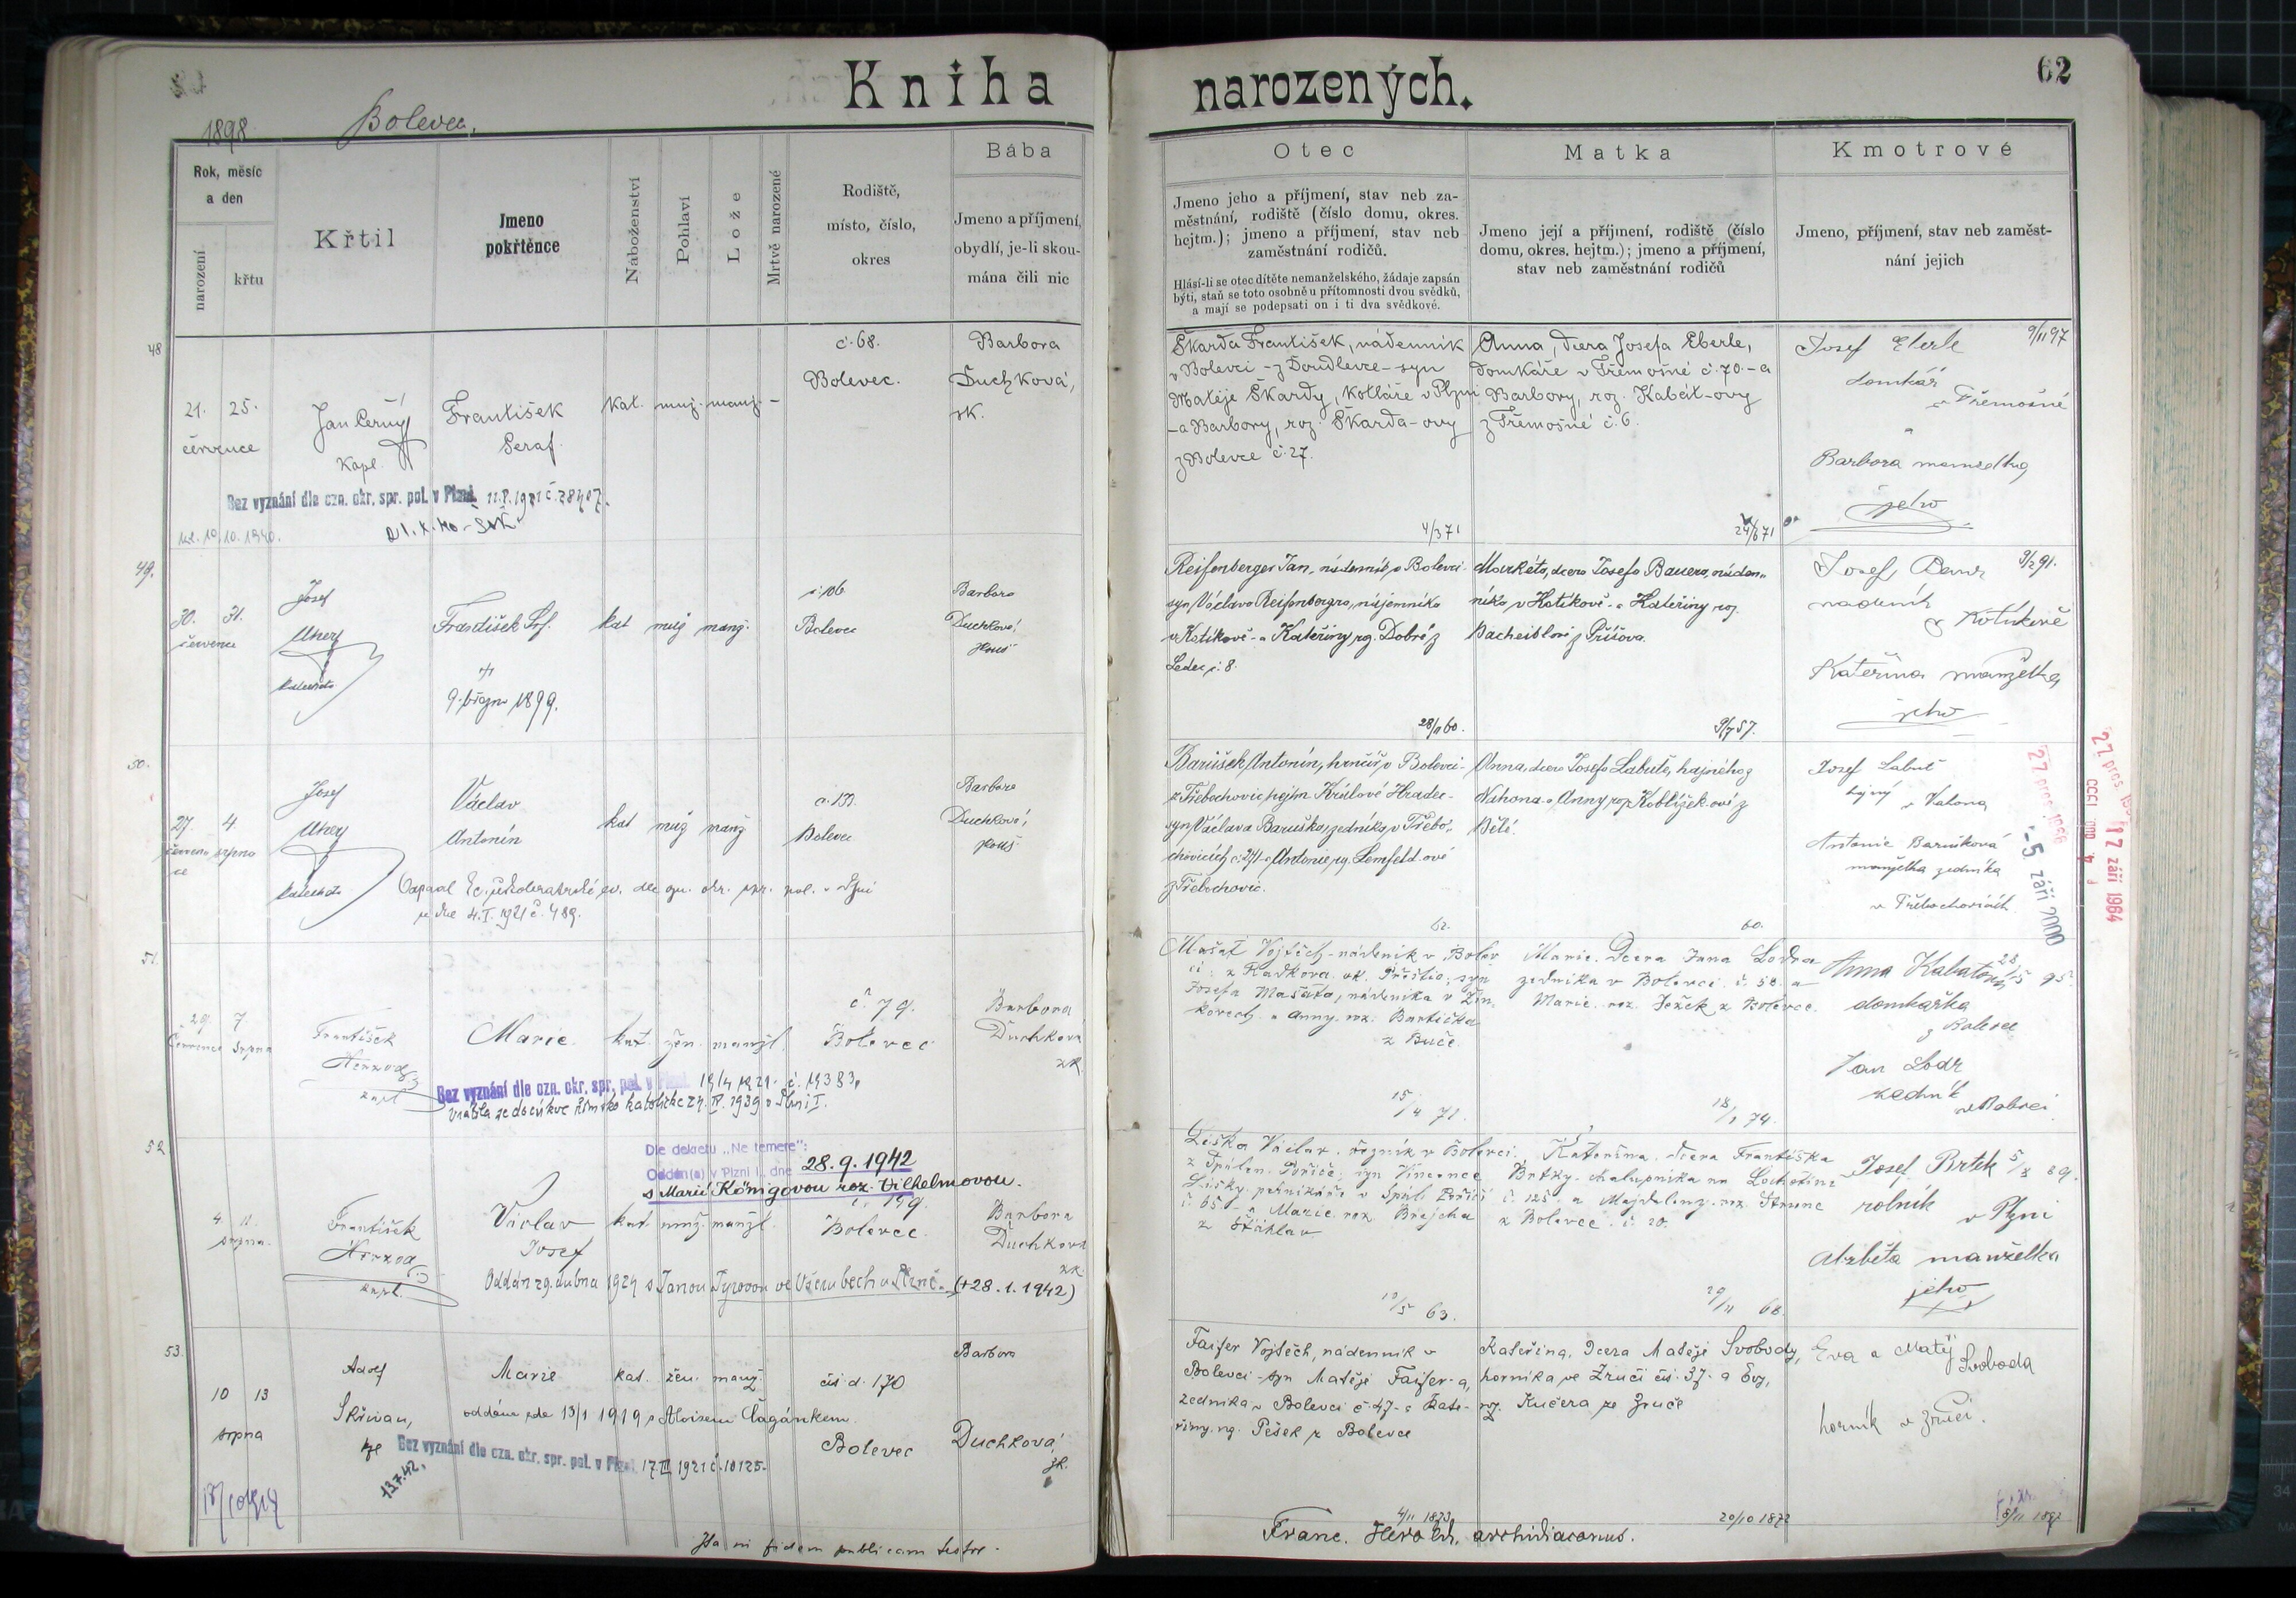 Kniha narozených.
62
1898
Bolevec.
Rok, měsíc
a den
narození
křtu
Křtil
Jmeno
pokřtěnce
Náboženství
Pohlaví
Lože
Mrtvě narozené
Rodiště,
místo, číslo,
okres
Bába
Jmeno a příjmení,
obydlí, je-li skou-
mána čili nic
Otec
Jmeno jeho a příjmení, stav neb za-
městnání, rodiště (číslo domu, okres.
hejtm.); jmeno a příjmení, stav neb
zaměstnání rodičů.
Hlásí-li se otec dítěte nemanželského, žádaje zapsán
býti, staň se toto osobně u přítomnosti dvou svědků,
a mají se podepsati on i ti dva svědkové.
Matka
Jmeno její a příjmení, rodiště (číslo
domu, okres. hejtm.); jmeno a příjmení,
stav neb zaměstnání rodičů
Kmotrové
Jmeno, příjmení, stav neb zaměst-
nání jejich
48
21. 25.
července
Jan Černý
Kapl.
František
Seraf.
kat. muž. manž. -
č. 68.
Bolevec.
Barbora
Duchková,
zk.
Bez vyznání dle ozn. okr. spr. pol. v Plzni
10.10.1940.
Škarda František, nádenník
v Bolevci - z Doudlevec - syn
Matěje Škardy, kotláře v Plzni
- a Barbory, roz. Škarda-ovy
z Bolevce č. 27.
4/3 71
Anna, dcera Josefa Eberle,
domkáře v Třemošné č. 70. - a
Barbory, roz. Kabát-ovy
z Třemošné č. 6.
Josef Eberle
9/11 97
domkář
v Třemošné
Barbora manželka
jeho
49.
30. 31.
července
Josef
Uhery
katecheta
František Srf.
9. března 1899.
kat muž manž.
č. 106
Bolevec
Barbora
Duchková,
Reifenberger Jan, nádenník v Bolevci -
syn Václava Reifenbergra, nájemníka
v Kotíkově - a Kateřiny roz. Dobré z
Ledec č. 8.
28/11 60.
Markéta, dcera Josefa Bauera, náden-
níka v Kotíkově - a Kateřiny roz.
9/7 57.
Josef Baur
9/2 91.
nádeník
v Kotíkově
Kateřina manželka
jeho
50.
27. 4.
července srpna
Josef
Uhery
katecheta
Václav
Antonín
kat muž manž
č. 133.
Bolevec
Barbora
Duchková,
dle ozn. okr. spr. pol. v Plzni
ze dne 4. I. 1921 č. 489.
Barušek Antonín, hrnčíř v Bolevci -
z Třebechovic hejtm. Králové Hradec -
syn Václava Baruška, zedníka v Třebe-
chovicích č. 271 - a Antonie roz. Lemfeld-ové
z Třebechovic.
62.
Anna, dcera Josefa Labutě, hajného z
Nahona - a Anny roz. Koblížek-ové z
Bělé.
60.
Josef Labuť
hajný
Antonie Barušková
manželka zedníka
v Třebechovicích
27 pros 1966
- 5 září 2000
17 září 1964
51.
29. 7.
července srpna
František
Herzog
kapl.
Marie
kat. žen. manžl.
č. 79.
Bolevec
Barbora
Duchková
zk.
Bez vyznání dle ozn. okr. spr. pol. v Plzni 19/4 1921. č. 19383,
vrátila se do církve římsko katolické 24. IV. 1939 v Plzni I.
Mašat Vojtěch - nádeník v Bolev
Josefa Mašata, nádeníka v
z Buče.
15/4 71.
Marie. Dcera Jana Lodra
zedníka v Bolevci. č. 58. a
Marie. roz. Ježek z Bolevce.
18/1 74.
Anna Kabatová
domkařka
z Bolevce
Jan Lodr
zedník
v Bolevci
52.
4. 11.
srpna.
František
Herzog
kapl.
Václav
Josef
kat. muž. manžl.
č. 159.
Bolevec.
Barbora
Duchková
zk.
Dle dekretu „Ne temere":
Oddán(a) v Plzni I., dne 28. 9. 1942
s Marií Königovou roz. Vilhelmovou.
Oddán 29. dubna 1924 s Janou Tyrovou ve Všerubech u Plzně. (+ 28. 1. 1942)
Liška Václav. řezník v Bolevci.
z Spálen. Poříčí, syn Vincence
č. 65 - a Marie. roz. Brejcha
z Šťáhlav
12/5 63.
Kateřina. dcera Františka
Brtky, chalupníka na Lochotíně
č. 125. a Majdaleny. roz. Strunc
z Bolevce. č. 20.
29/11 68.
Josef Brtek
rolník
v Plzni
Alžběta manželka
jeho
53.
10 13
srpna
Adolf
Skřivan,
Marie
kat. žen. manž.
čís d. 170
Bolevec
Barbora
Duchková,
zk.
oddána dne 13/1 1919 s Aloisem Čagánkem.
Bez vyznání dle ozn. okr. spr. pol. v Plzni 17. III 1921 č. 10125.
13.7.42.
Faifer Vojtěch, nádenník v
Bolevci - syn Matěje Faifer-a,
zedníka v Bolevci č. 47 - a Kate-
řiny roz. Pešek z Bolevce
4/11 1873
Kateřina. Dcera Matěje Svobody,
horníka ve Zruči čís. 37 - a Evy,
roz. Kučera ze Zruče
20/10 1872
Eva a Matěj
Svoboda
horník v Zruči.
Ita in fidem publicam testor.
Franc. Herold, archidiaconus.